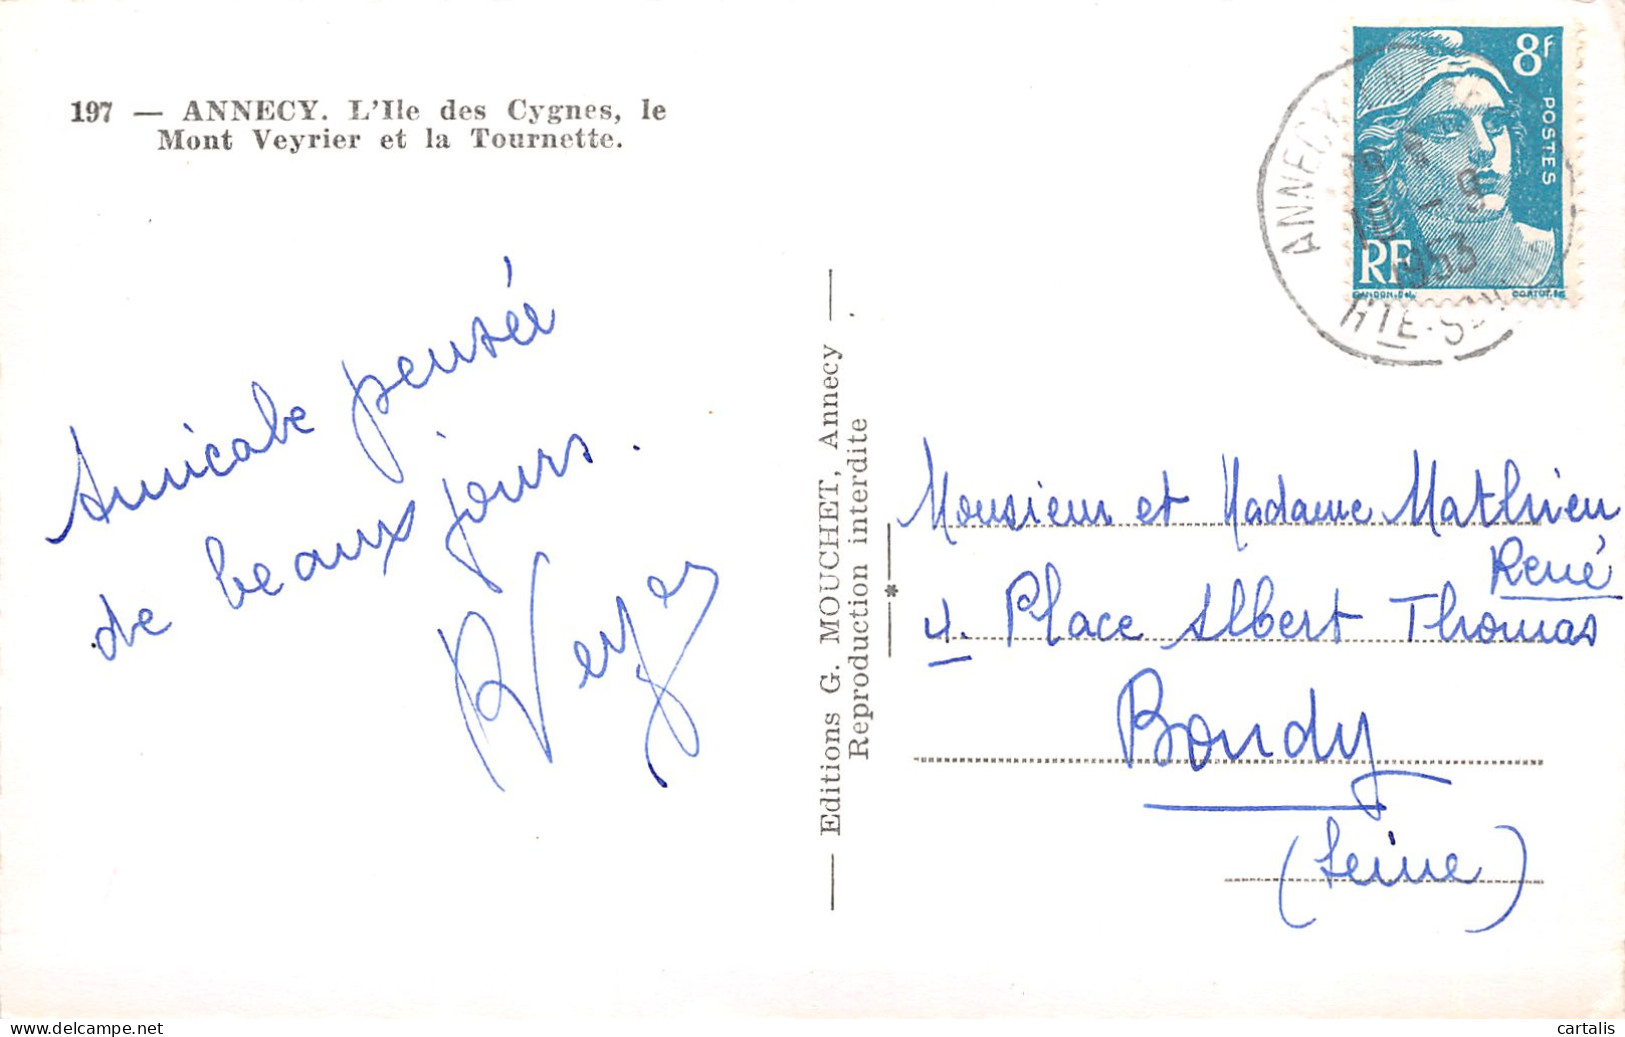 197 — ANNECY. L'Ile des Cygnes, le
Mont Veyrier et la Tournette.
Amicale pensée
de beaux jours.
Editions G. MOUCHET, Annecy
Reproduction interdite
8f
POSTES
RF
ANNECY
10 - 9
1953
HTE-S
Monsieur et Madame Mathieu
René
4. Place Albert Thomas
Bondy
(Seine)
cartalis
www.delcampe.net